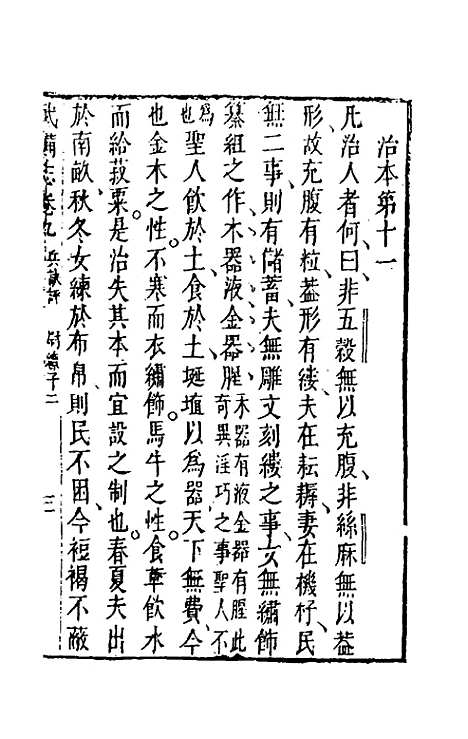 治本第十一
凡治人者何曰非五穀無以充腹非絲麻無以葢
形故充腹有粒葢形有縷夫在耘耨妻在機杼民
無二事則有儲蓄夫無雕文刻鏤之事女無繡飾
纂組之作木器液金器腥木器有液金器有腥此奇異淫巧之事聖人不
為也聖人飲於土食於土埏埴以為器天下無費今
也金木之性不寒而衣繡飾馬牛之性食草飲水
而給菽粟是治失其本而宜設之制也春夏夫出
於南畝秋冬女練於布帛則民不困今裋褐不蔽
武備志卷九 兵訣評 尉繚子二 三